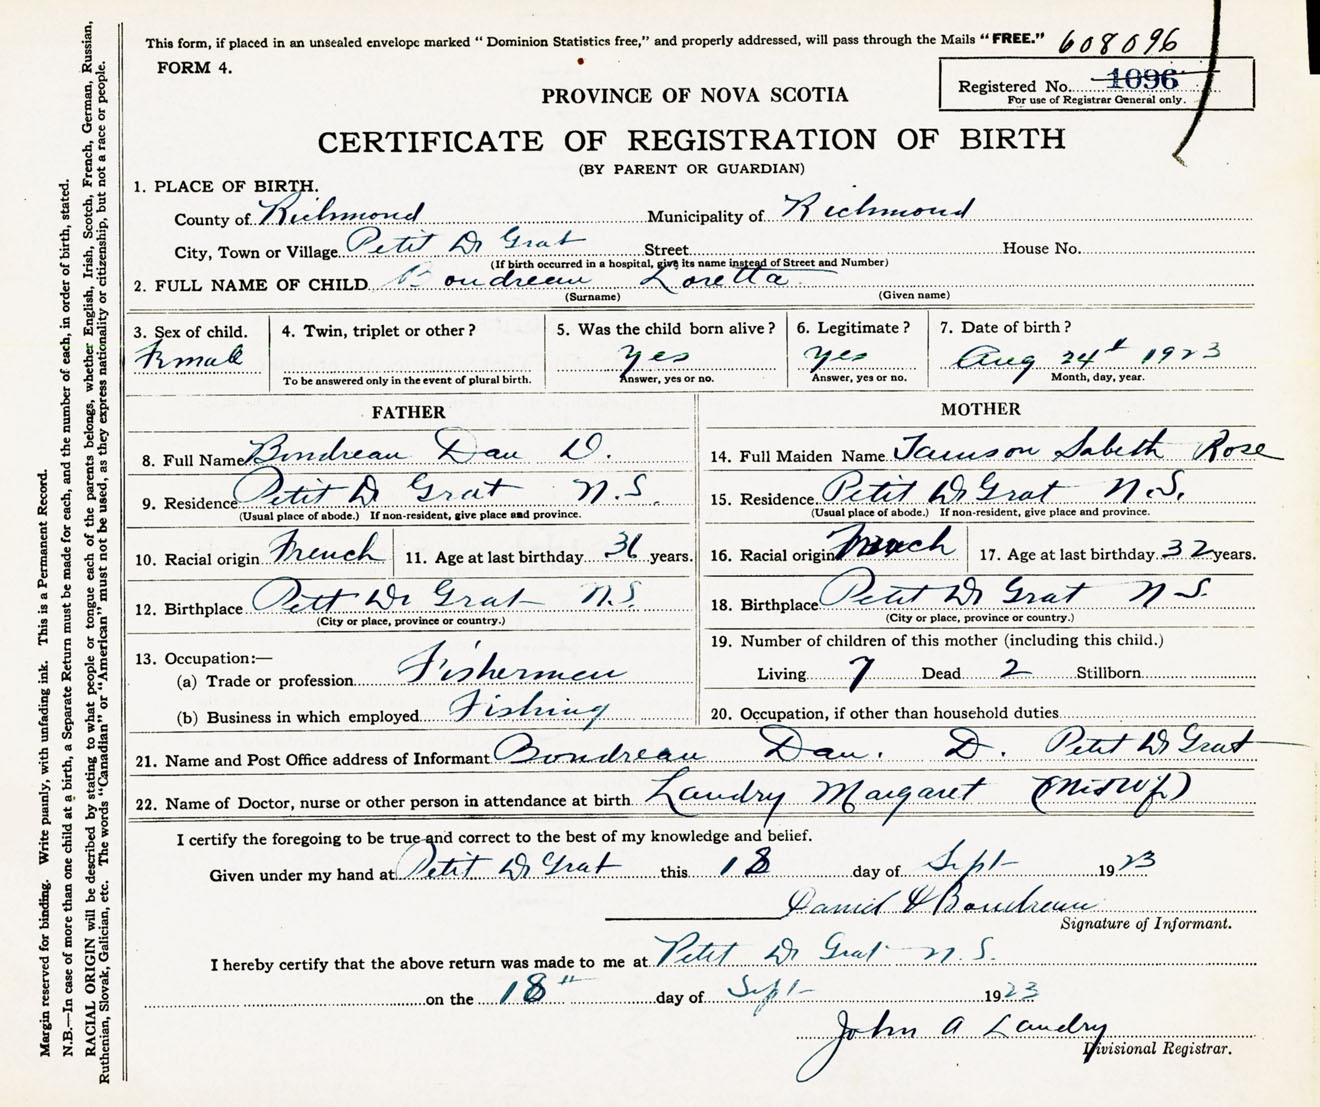 This form, if placed in an unsealed envelope marked “ Dominion Statistics free,” and properly addressed, will pass through the Mails “FREE.” 608096
FORM 4.
Registered No. 1096
For use of Registrar General only.
PROVINCE OF NOVA SCOTIA
CERTIFICATE OF REGISTRATION OF BIRTH
(BY PARENT OR GUARDIAN)
1. PLACE OF BIRTH.
County of Richmond Municipality of Richmond
City, Town or Village Petit De Grat Street House No.
(If birth occurred in a hospital, give its name instead of Street and Number)
2. FULL NAME OF CHILD Boudreau Loretta
(Surname) (Given name)
3. Sex of child. 4. Twin, triplet or other? 5. Was the child born alive? 6. Legitimate? 7. Date of birth?
Female yes yes Aug 24th 1923
To be answered only in the event of plural birth. Answer, yes or no. Answer, yes or no. Month, day, year.
FATHER MOTHER
8. Full Name Boudreau Dan D. 14. Full Maiden Name Jamson Sabeth Rose
9. Residence Petit De Grat N.S. 15. Residence Petit De Grat N.S.
(Usual place of abode.) If non-resident, give place and province. (Usual place of abode.) If non-resident, give place and province.
10. Racial origin French 11. Age at last birthday 36 years. 16. Racial origin French 17. Age at last birthday 32 years.
12. Birthplace Petit De Grat N.S. 18. Birthplace Petit De Grat N S.
(City or place, province or country.) (City or place, province or country.)
13. Occupation:— 19. Number of children of this mother (including this child.)
(a) Trade or profession Fishermen Living 7 Dead 2 Stillborn
(b) Business in which employed Fishing 20. Occupation, if other than household duties
21. Name and Post Office address of Informant Boudreau Dan. D. Petit De Grat
22. Name of Doctor, nurse or other person in attendance at birth Landry Margaret (Midwif)
I certify the foregoing to be true and correct to the best of my knowledge and belief.
Given under my hand at Petit De Grat this 18 day of Sept 1923
Daniel D Boudreau
Signature of Informant.
I hereby certify that the above return was made to me at Petit De Grat N. S.
on the 18th day of Sept 1923
John A Landry
Divisional Registrar.
Margin reserved for binding. Write plainly, with unfading ink. This is a Permanent Record.
N.B.—In case of more than one child at a birth, a Separate Return must be made for each, and the number of each, in order of birth, stated.
RACIAL ORIGIN will be described by stating to what people or tongue each of the parents belongs, whether English, Irish, Scotch, French, German, Russian,
Ruthenian, Slovak, Galician, etc. The words “Canadian” or “American” must not be used, as they express nationality or citizenship, but not a race or people.